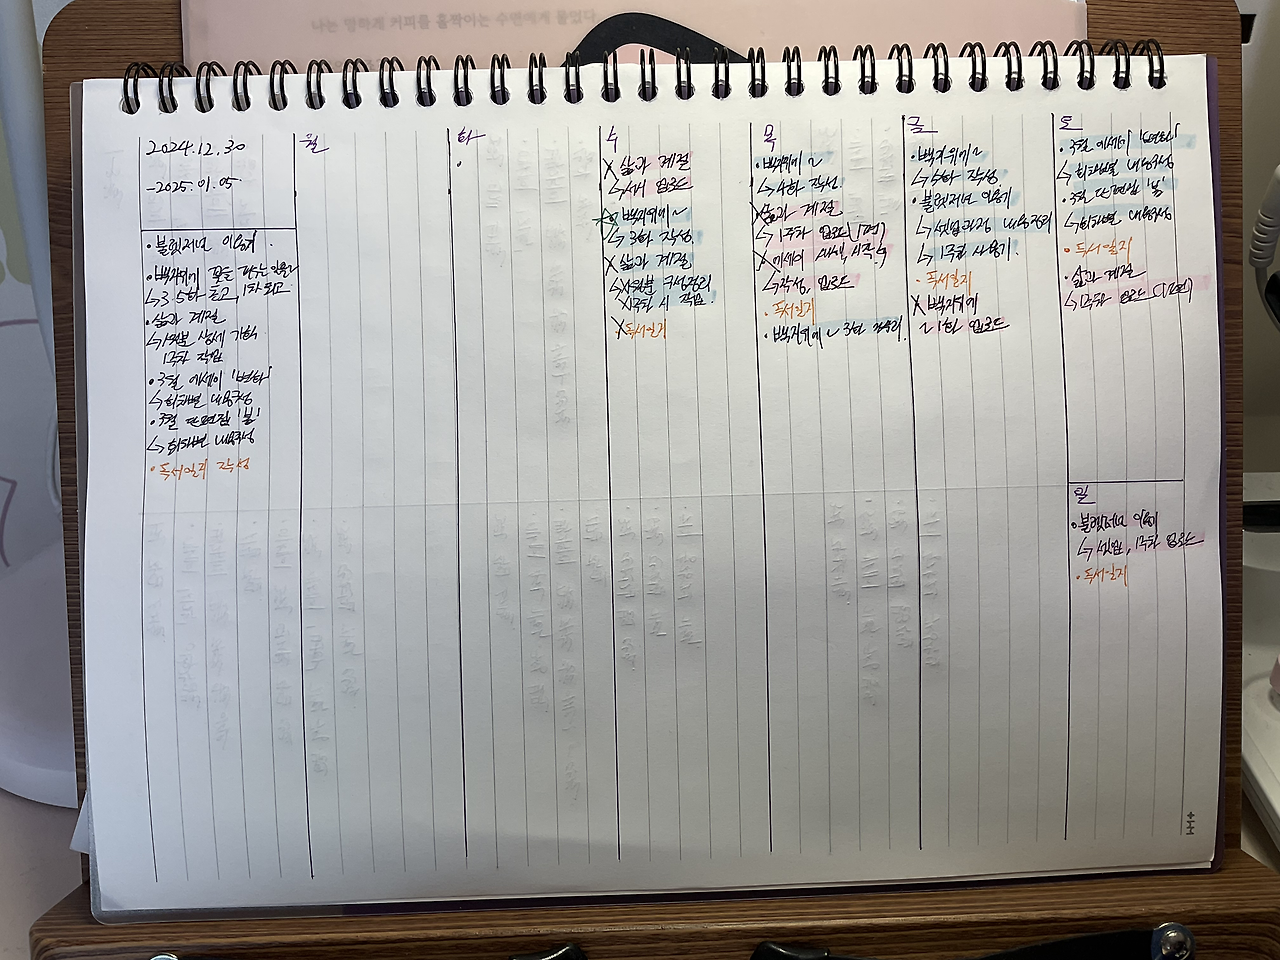 나는 멍하게 커피를 홀짝이는 수변에게 물었다.
2024.12.30
-2025.01.05
• 불렛저널 이용기.
• 백지위에
↳ 3.5화 초고, 1화 퇴고
• 삶과 계절
↳ 1월분 상세 기획
1주차 작업
• 3월 에세이 '변화'
↳ 회차별 내용구성
• 3월 단편집 '봄'
↳ 회차별 내용구성
• 독서일지 작성
월
화
•
수
삶과 계절
↳ 서시 업로드
백지위에~
↳ 3화 작성.
삶과 계절
↳ 1월분 구성정리
1주차 시 작업.
독서일지
목
• 백지위에~
↳ 4화 작성.
삶과 계절
↳ 1주차 업로드(1편)
에세이
↳ 작성, 업로드
• 독서일지
• 백지위에~ 3화
금
• 백지위에~
↳ 5화 작성
• 불렛저널 이용기
↳ 셋업과정 내용정리
↳ 1주차 사용기.
• 독서일지
백지위에
~ 1화 업로드
토
• 3월 에세이 '변화'
↳ 회차별 내용구성
• 3월 단편집 '봄'
↳ 회차별 내용구성
• 독서일지
• 삶과 계절
↳ 1주차 업로드(1편)
일
• 불렛저널 이용기
↳ 셋업, 1주차 업로드
• 독서일지